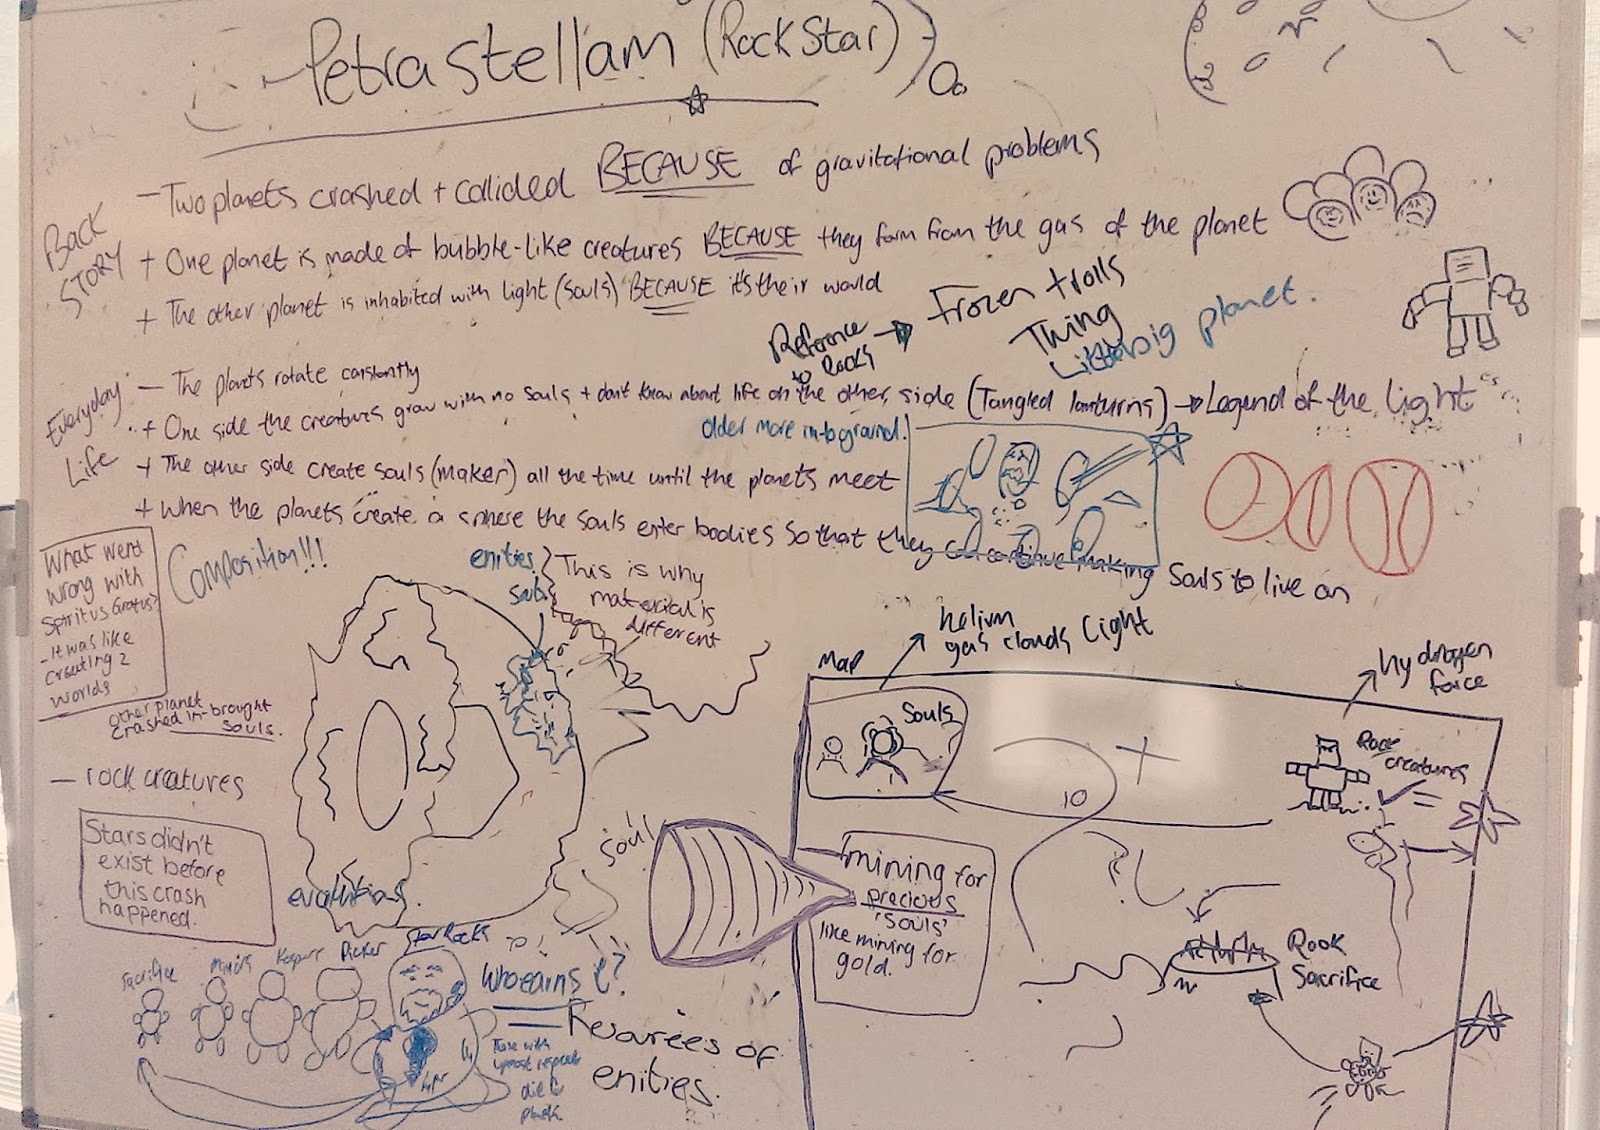 Petrastellam (RockStar)
BACK STORY
- Two planets crashed + collided BECAUSE of gravitational problems
+ One planet is made of bubble-like creatures BECAUSE they form from the gas of the planet
+ The other planet is inhabited with light (souls) BECAUSE it's their world
Reference to rocks
Frozen trolls
Thing
Little big planet.
Everyday Life
- The planets rotate constantly
+ One side the creatures grow with no souls + don't know about life on the other side (Tangled lanturns) → Legend of the light
older more into ground.
+ The other side create souls (maker) all the time until the planets meet
+ When the planets create a sphere the souls enter bodies so that they can continue making souls to live on
What went
wrong with
Spiritus Gratus?
- It was like
creating 2
worlds
Composition!!!
enities
Souls
This is why
material is
different
other planet
crashed in-brought
souls.
- rock creatures
Stars didn't
exist before
this crash
happened.
Map
helium
gas clouds Light
hydrogen
force
Souls
Rock
creatures
10
Soul
mining for
precious
'souls'
like mining for
gold.
Rook
Sacrifice
Sacrifice
Star Rocks
Who earns it?
= Resources of
enities.
those with
upmost respect
die